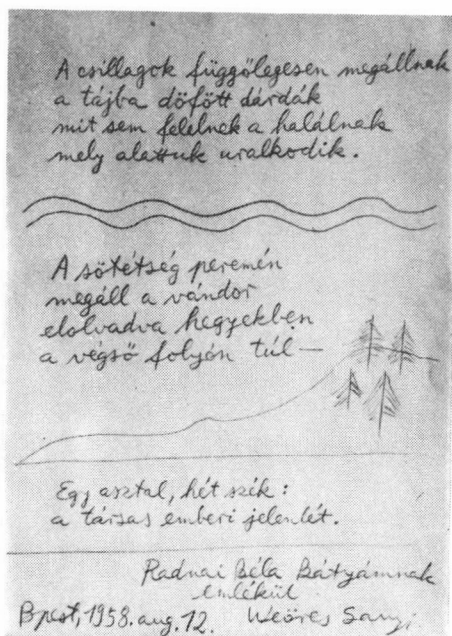 A csillagok függőlegesen megállnak
a tájba döfött dárdák
mit sem felelnek a halálnak
mely alattuk uralkodik.
A sötétség peremén
megáll a vándor
elolvadva hegyekben
a végső folyón túl —
Egy asztal, hét szék:
a társas emberi jelenlét.
Radnai Béla Bátyámnak
emlékül
Bpest, 1958. aug. 12. Weöres Sanyi